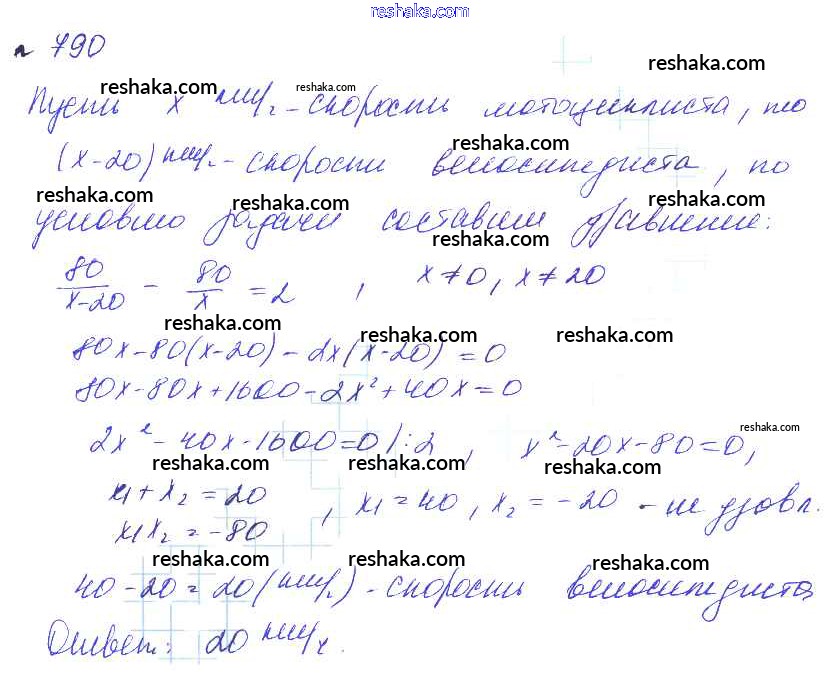 reshaka.com
№ 790
reshaka.com
reshaka.com reshaka.com
Пусть x км/ч - скорость мотоциклиста, то
reshaka.com
(x-20) км/ч - скорость велосипедиста, по
reshaka.com reshaka.com reshaka.com
условию задачи составим уравнение:
reshaka.com
80/(x-20) - 80/x = 2 , x≠0, x≠20
reshaka.com reshaka.com reshaka.com
80x-80(x-20)-2x(x-20)=0
80x-80x+1600-2x²+40x=0
reshaka.com
2x²-40x-1600=0 /:2 , x²-20x-80=0,
reshaka.com reshaka.com reshaka.com
x₁+x₂=20
x₁x₂=-80 , x₁=40, x₂=-20 - не удовл.
reshaka.com reshaka.com reshaka.com
40-20=20(км/ч) - скорость велосипедиста
Ответ: 20 км/ч.